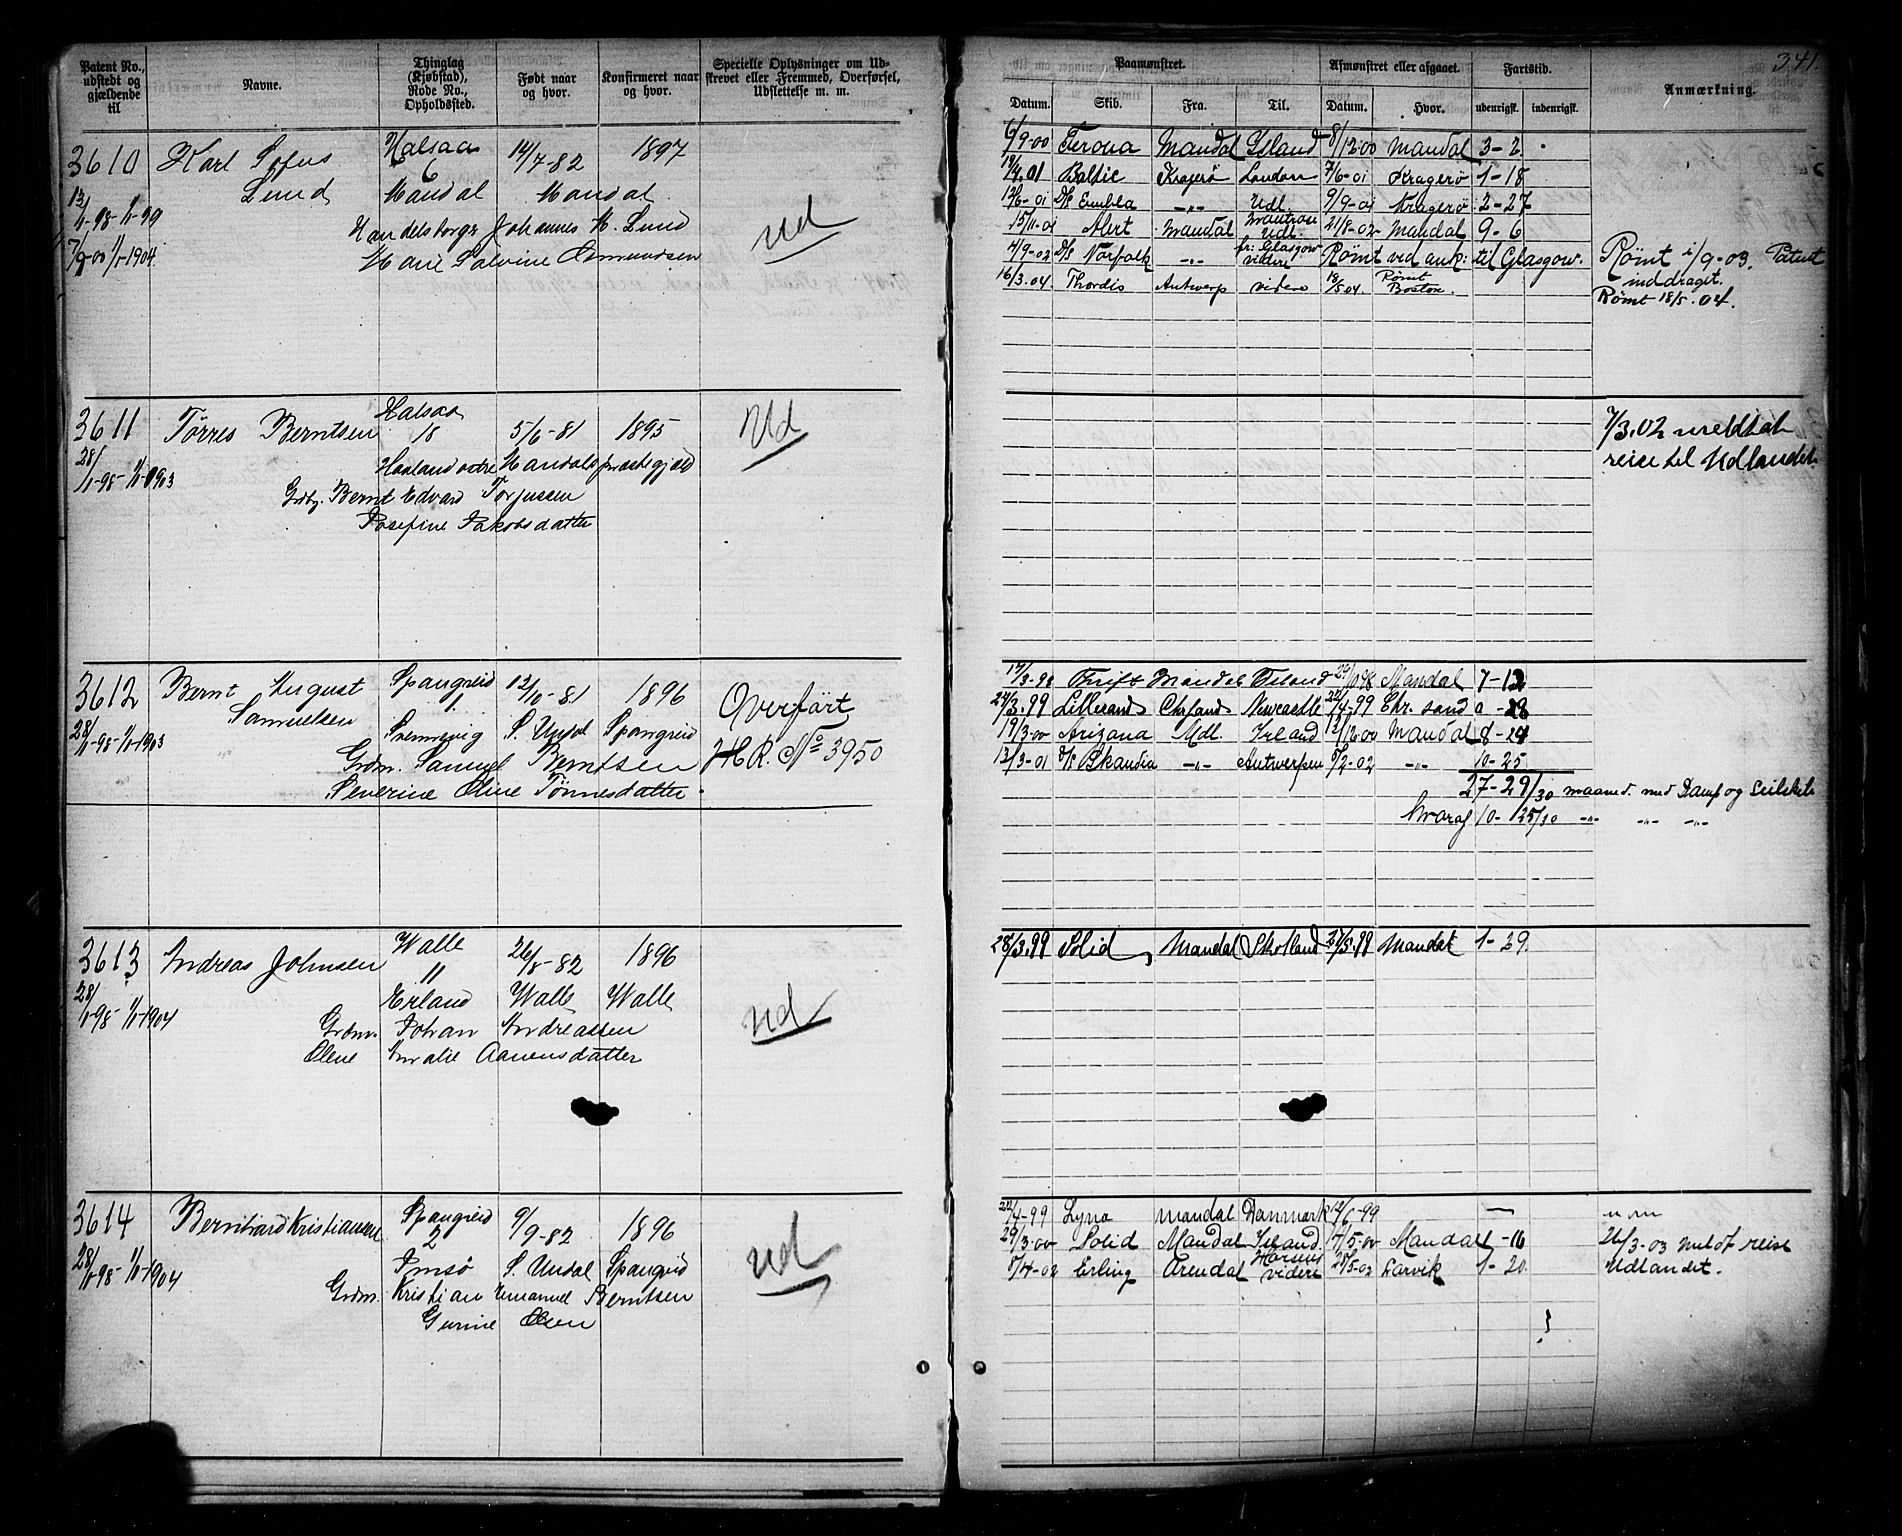 341.
Patent No., udstedt og gjældende til
Navne.
Thinglag (Kjøbstad), Rode No., Opholdssted.
Født naar og hvor.
Konfirmeret naar og hvor.
Specielle Oplysninger om Udskrevet eller Fremmed, Overførsel, Udslettelse m. m.
Paamønstret.
Afmønstret eller afgaaet.
Fartstid.
Anmærkning.
Datum. Skib. Fra. Til. Datum. Hvor. udenrigsk. indenrigsk.
3610 Karl Sofus Halsaa 14/7-82 1897
Lund 6
Mandal Mandal
13/1-98-1/1-99
Handelsborger Johannes M. Lund
7/9-00 1/1-1904 Marie Salvine Osmundsen
Ud
6/9-00 Mandal Island 8/12 00 Mandal 3-2
Baltic Kragerø London 7/6-01 Kragerø 1-18
12/6-01 D/s Embla -"- Udl. 9/9-01 Kragerø 2-27
15/11-01 Alert Mandal Udl. 21/8-02 Mandal 9-6
4/9-02 D/s Norfolk -"- Glasgow videre Rømt ved ank: til Glasgow.
16/3.04. Thordis Antwerp videre 18/5 04. Rømt Boston.
Rømt 1/9-03. Patent
inddraget.
Rømt 18/5.04.
3611 Tørres Berntsen Halsaa 18 5/6-81 1895
28/1-98-1/1-1903 Haaland østre Mandals præstegjæld
Grdbr. Bernt Edvard Torjussen
Josefine Jakobsdatter
Ud
7/3.02 meldt at
reise til Udlandet
3612 Bernt August Spangreid 12/10-81 1896
Samuelsen
28/1-98-1/1-1903 Svennevig S. Undal Spangreid
Grdm. Samuel Berntsen
Severine Oline Tønnesdatter.
Overført
H.R. No 3950
17/3-98 Mandal Island Mandal 7-12
24/3.99 Lillesand Chrsand Newcastle 22/4-99 Chr. sand 0-28
19/3-00 Arizana Udl. Irland 12/12 00 Mandal 8-24
13/3-01 D/s Skandia -"- Antwerpen 5/2-02 -"- 10-25
27-29/30 maaned. med Damp og Seilskib
hvoraf 10-25/30 -"- -"- -"-
3613 Andreas Johnsen Walle 26/8-82 1896
11
28/1-98-1/1-1904 Erland Walle Walle
Grdm. Johan Andreassen
Olene Amalie Aanensdatter
Ud
28/3.99 Solid Mandal Skotland 27/5.99 Mandal 1-29.
3614 Bernhard Kristiansen Spangreid 9/9-82 1896
2
28/1-98-1/1-1904 Imsø S. Undal Spangreid
Grdm. Kristian Emanuel Berntsen
Gurine Olsen
Ud
22/4-99 Lyna Mandal Danmark 12/6-99 —
29/3-00 Solid Mandal Island 17/5-00 Mandal 1-16
5/4-02 Erling Arendal Horsens videre 25/5-02 Larvik 1-20.
26/3-03 meldt reise
Udlandet.